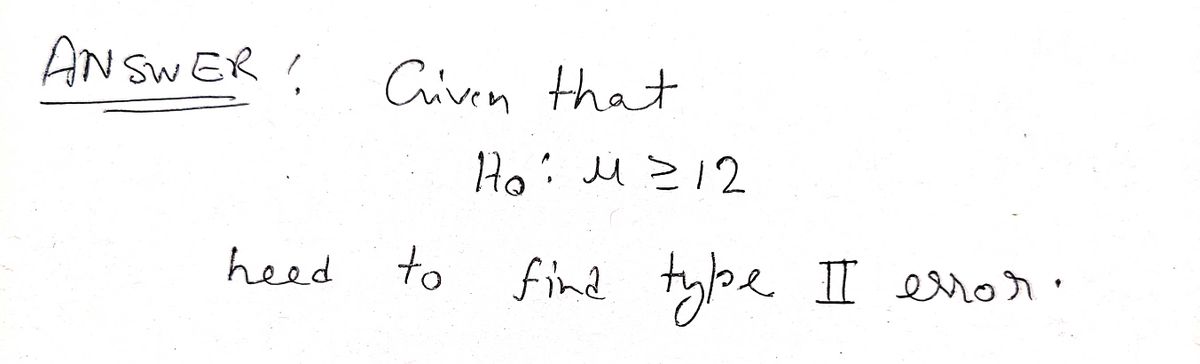 ANSWER : Given that
H₀ : μ ≥ 12
need to find type II error.